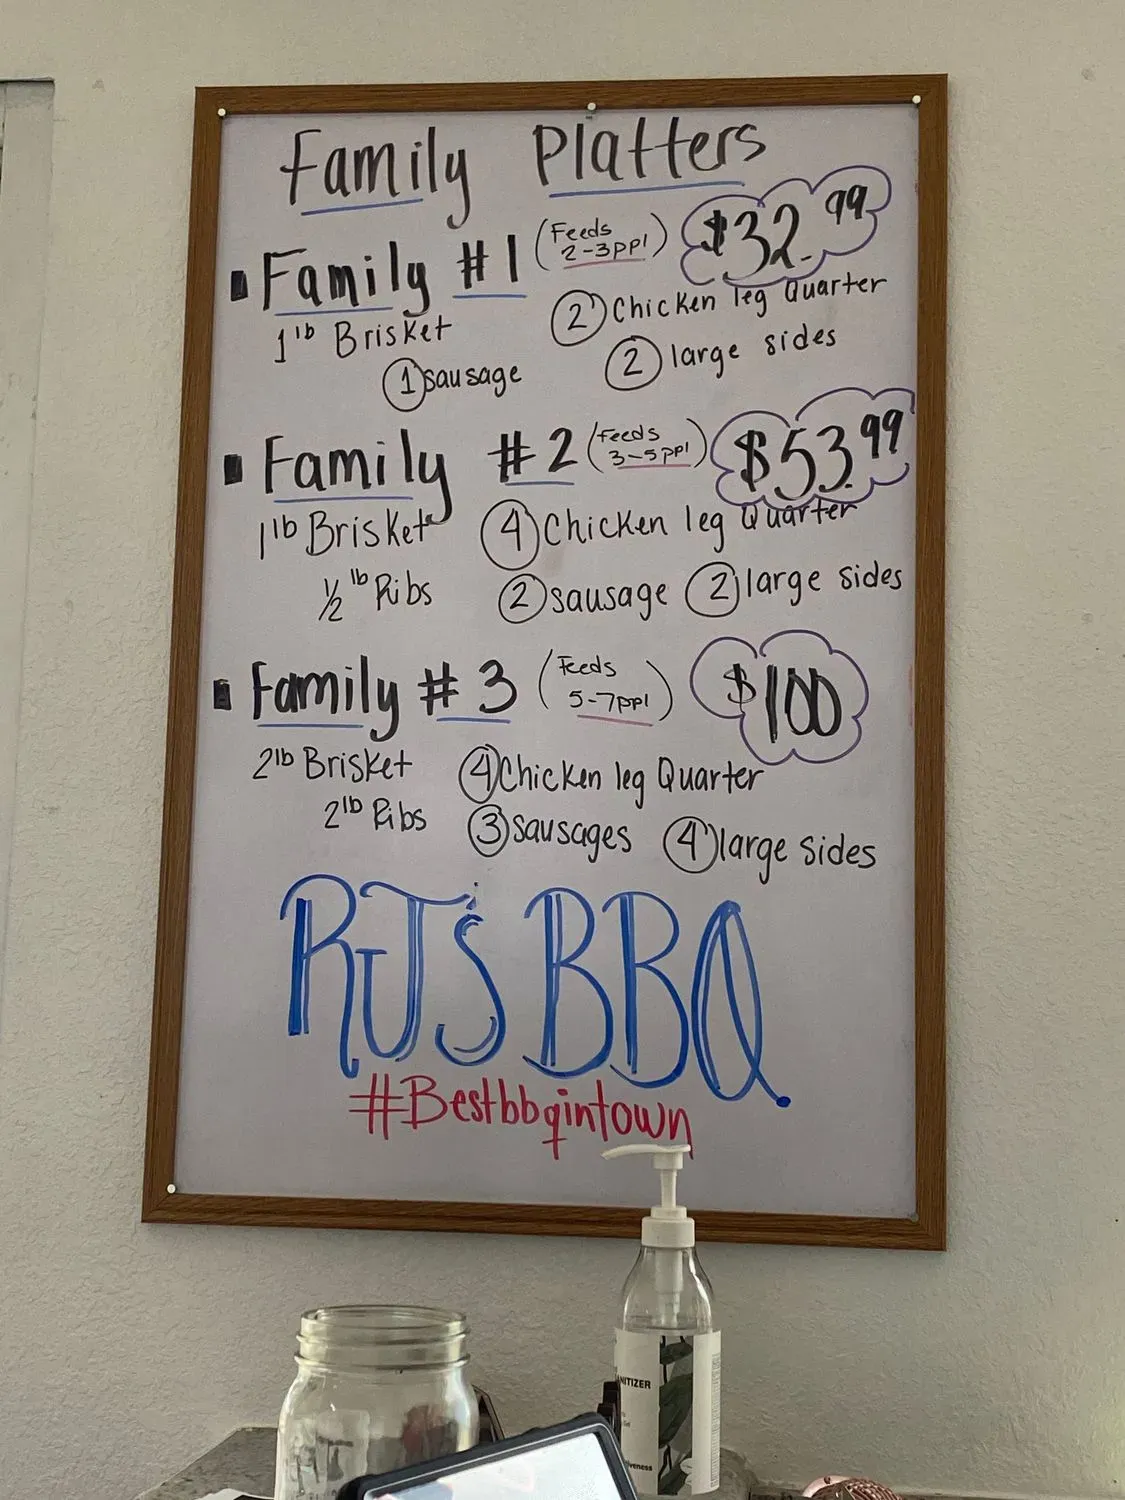 Family Platters
Family #1 (Feeds 2-3ppl) $32.99
1 lb Brisket
2 Chicken leg Quarter
1 sausage
2 large sides
Family #2 (Feeds 3-5ppl) $53.99
1 lb Brisket
4 Chicken leg Quarter
1/2 lb Ribs
2 sausage 2 large sides
Family #3 (Feeds 5-7ppl) $100
2 lb Brisket
4 Chicken leg Quarter
2 lb Ribs
3 sausages 4 large sides
RJ's BBQ.
#Bestbbqintown
NITIZER
iveness